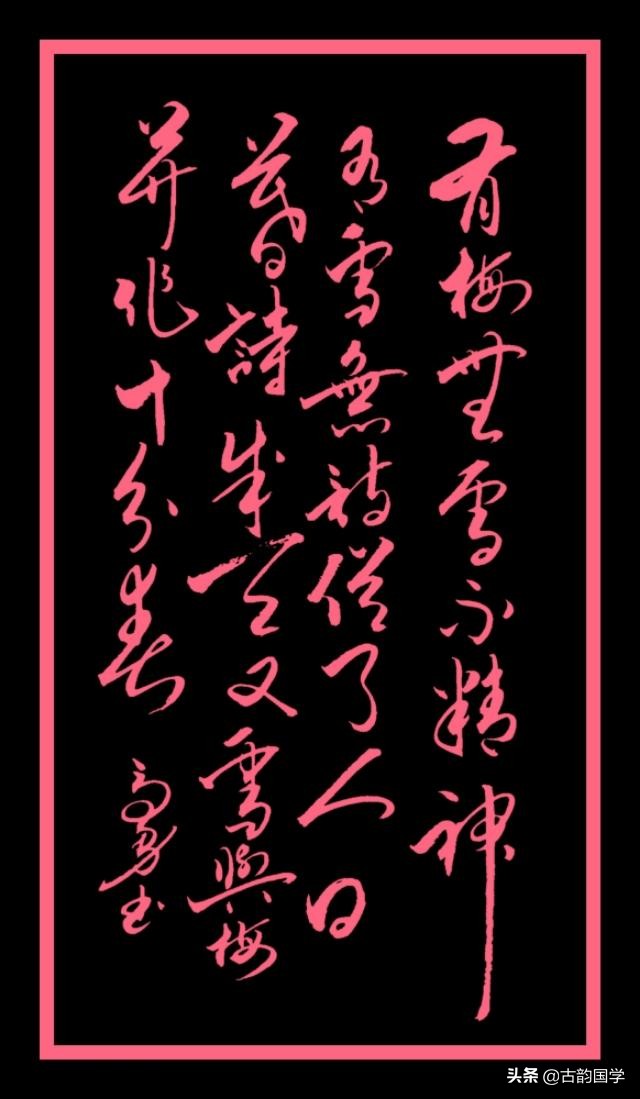 有梅無雪不精神
有雪無詩俗了人日
暮詩成天又雪與梅
并作十分春
高勇书
头条 @古韵国学